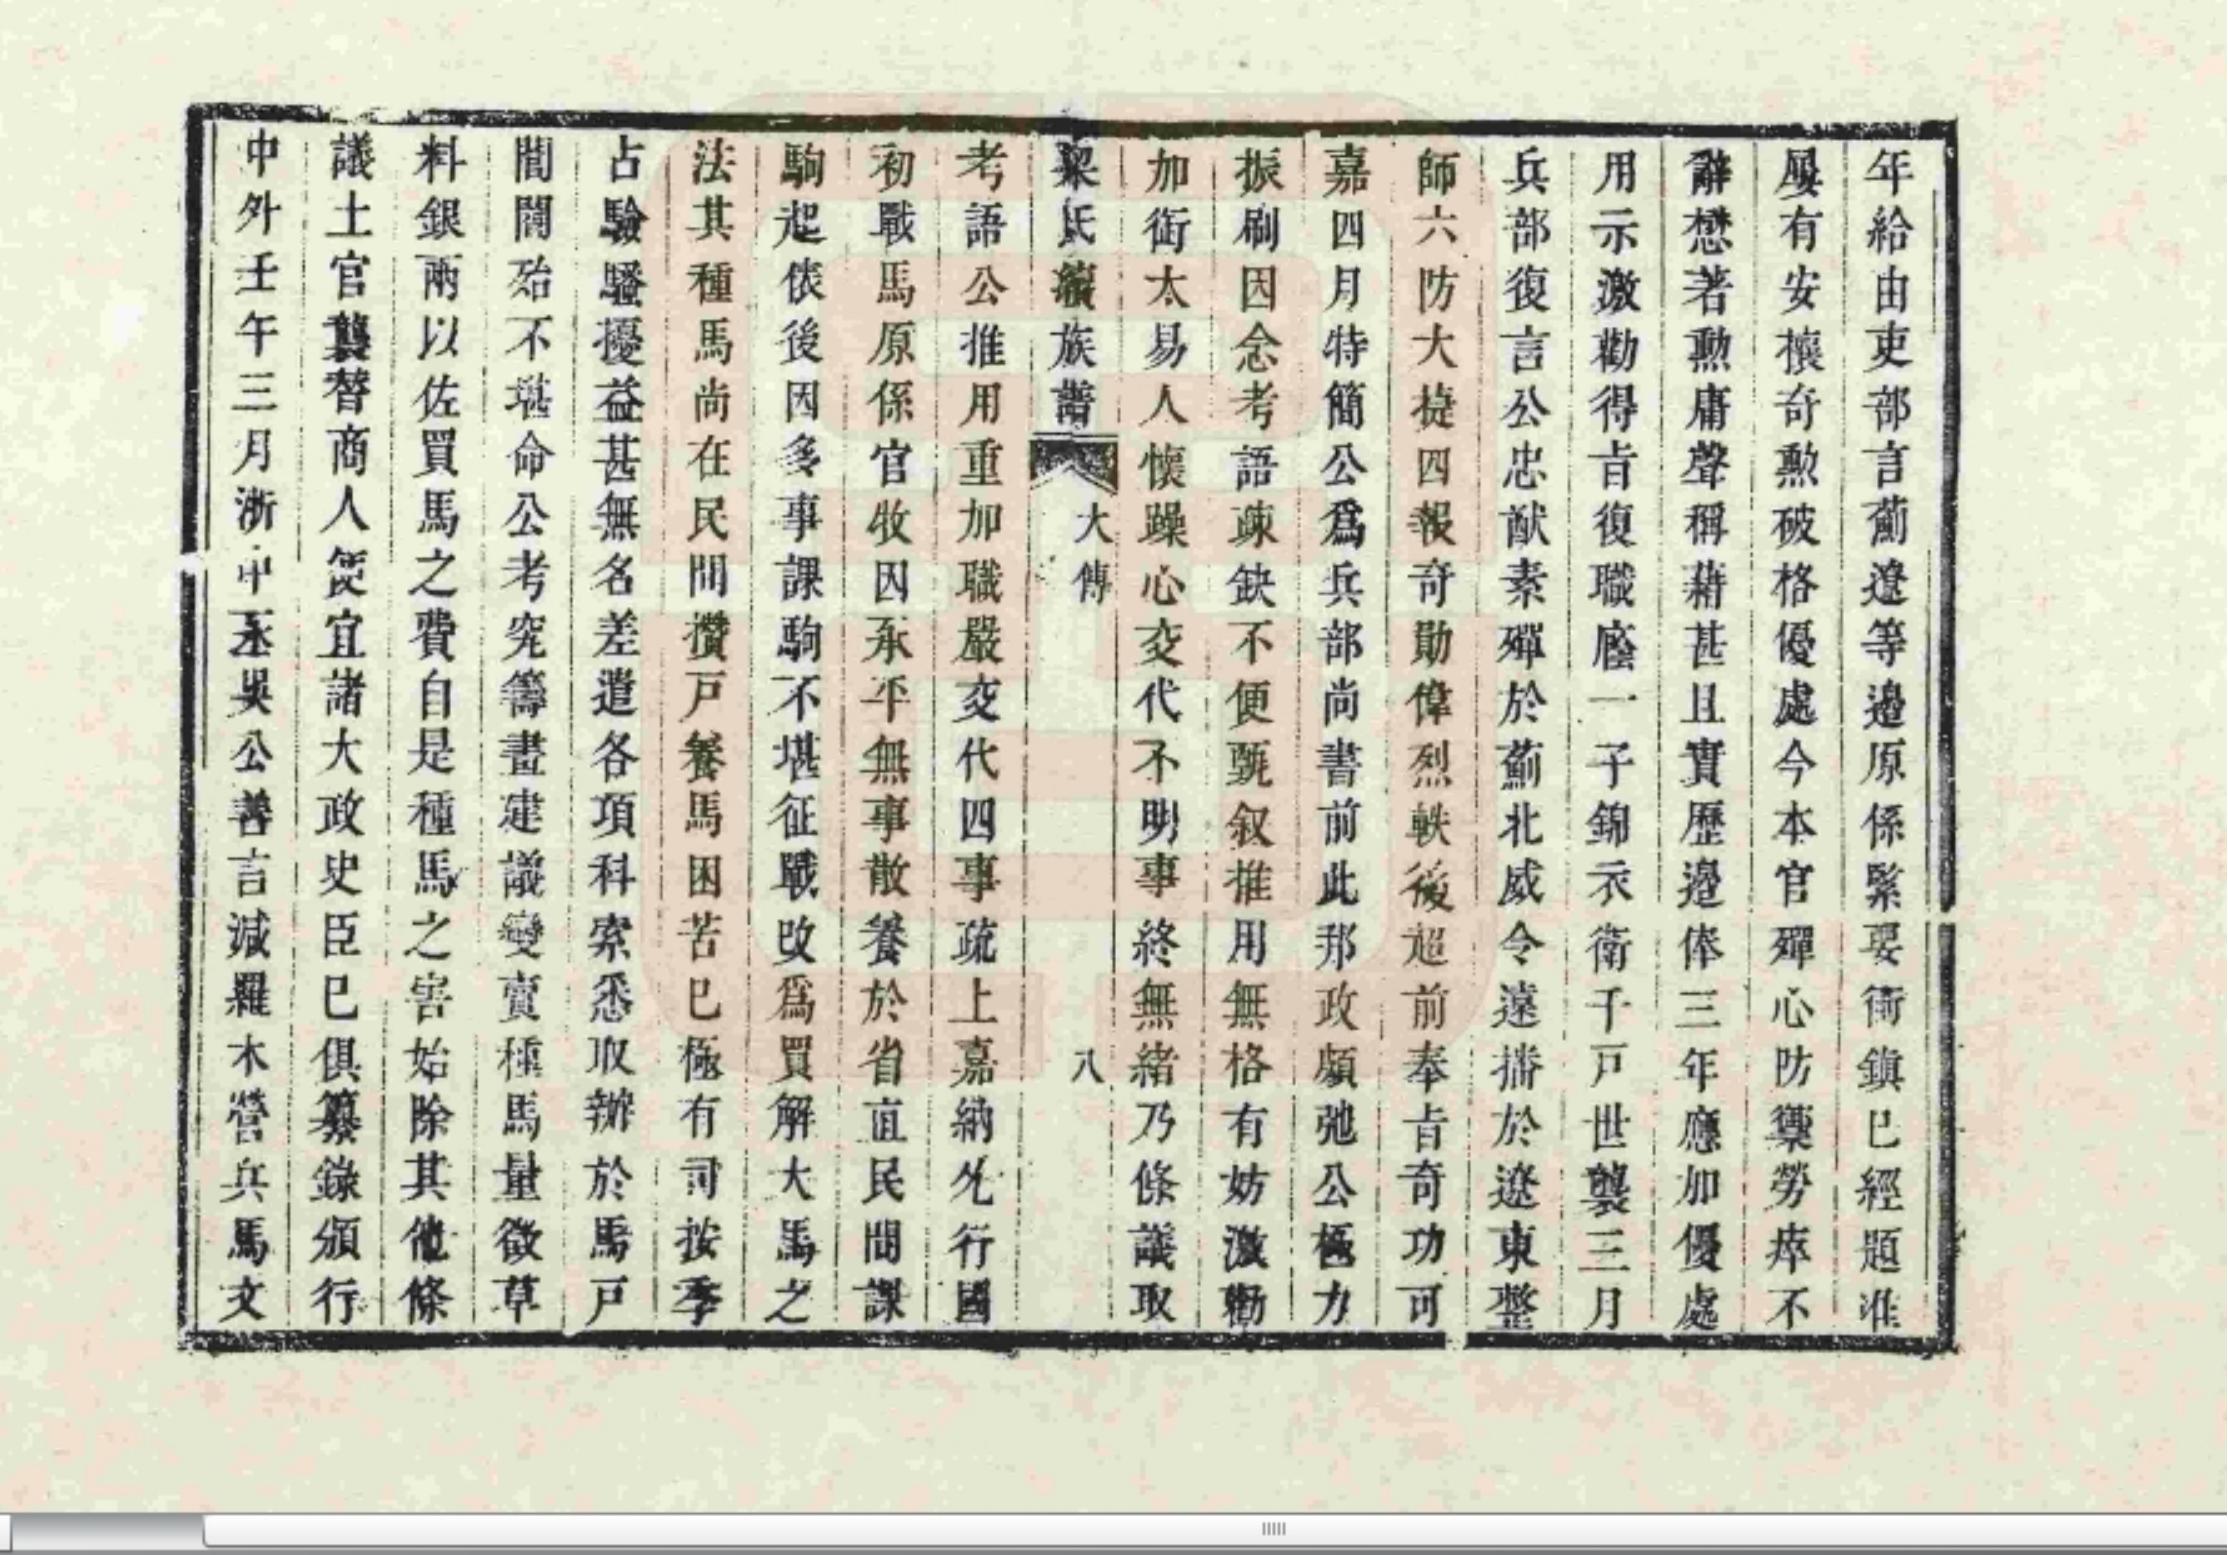 年給由吏部言薊遼等邊原係緊要衝鎮巳經題准
屢有安攘奇勲破格優處今本官殫心防禦勞瘁不
辭懋著勲庸聲稱藉甚且實歷邊俸三年應加優處
用示激勸得㫖復職廕一子錦衣衛千戸世襲三月
兵部復言公忠猷素殫於薊北威令遠播於遼東整
師六防大捷四報奇勛偉烈軼後超前奉㫖奇功可
嘉四月特簡公爲兵部尚書前此邦政頗弛公極力
振刷因念考語疎缺不便甄叙推用無格有妨激勸
加銜太易人懷躁心交代不明事終無緒乃條議取
梁氏續族譜 大傳 八
考語公推用重加職嚴交代四事疏上嘉納允行國
初戰馬原係官牧因承平無事散養於省直民間課
駒起俵後因多事課駒不堪征戰改爲買解大馬之
法其種馬尚在民間攢戸養馬困苦巳極有司按季
占驗騷擾益甚無名差遣各項科索悉取辦於馬戸
閭閻殆不堪命公考究籌畫建議變賣種馬量徵草
料銀兩以佐買馬之費自是種馬之害始除其他條
議土官襲替商人便宜諸大政史臣巳俱纂錄頒行
中外壬午三月浙中丞吳公善言減羅木營兵馬文